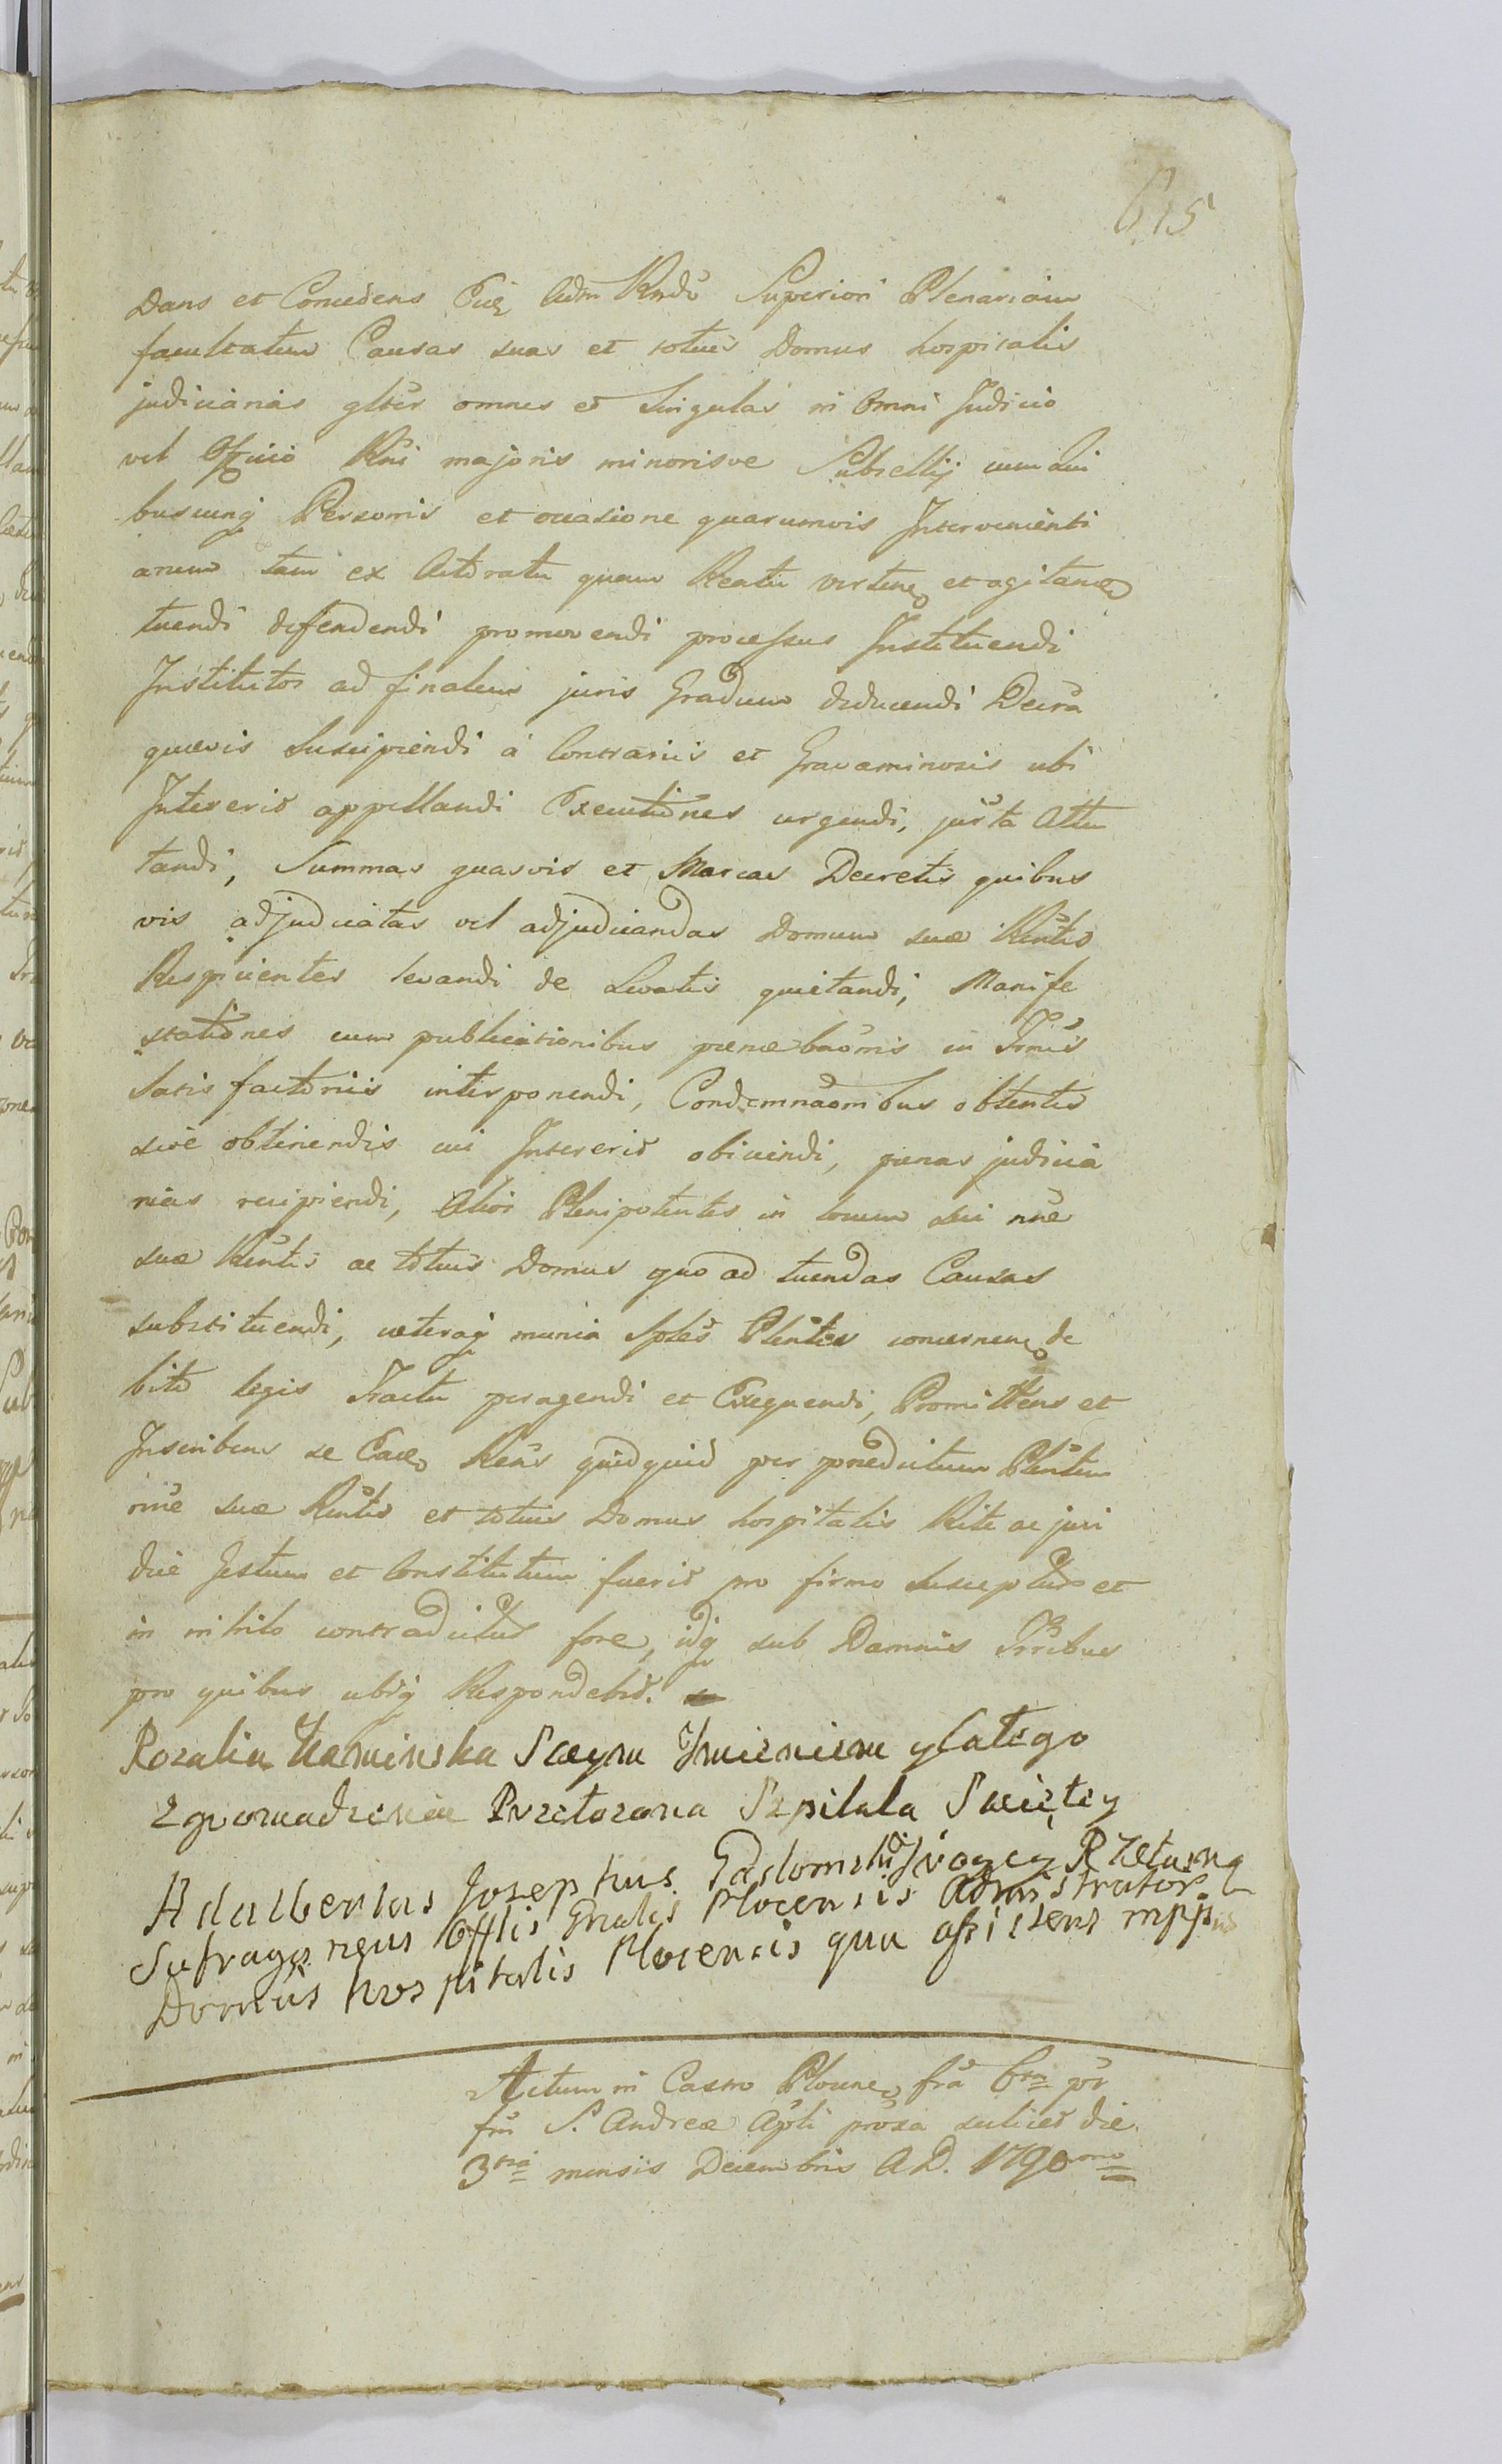 615
Dans et Concedens Eidẽ Adm Rndõ Superiori Plenariam
facultatem Causas suas et totius Domus hospitalis
judiciarias glter omnes et Singulas in Omni Judicio
vel Officio Rni majoris minorisve Subsellij cum Qui
buscunq Personis et occasione quarumvis Intervenienti
arum tam ex Actoratu quam Reatu verten et agitan
tuendi defendendi promovendi processus Instituendi
Institutos ad finalem juris Gradum deducendi Decra
quævis Suscipiendi à Contrariis et Gravaminosis ubi
Intererit appellandi Executiones urgendi, jurta Atten
tandi, Summas quasvis et Marcas Decretis quibus
vis adjudicatas vel adjudicandas Domum suæ Rntis
Respicientes levandi de Levatis quietandi, Manife
stationes cum publicationibus pœnæ bãonis in Trmis
Satisfactoriis interponendi, Condemnãonibus obtentis
sive obtinendis cui Intererit obiiciendi, pœnas judicia
rias recipiendi, Alios Plenipotentes in locum sui nne
suæ Rentis ac totius Domus quo ad tuendas Causas
substituendi, cæteraq munia Splis Plentis concernen de
bito legis Tractu peragendi et Exequendi, Promittens et
Inscribens se Ead Rens quidquid per prædictum Plentem
nne suæ Rentis et totius Domus hospitalis Rite ac juri
dice Gestum et Constitutum fuerit pro firmo Suscepturã et
in nihilo contradicturã fore, idq sub Damnis Trribus
pro quibus ubiq Respondebit.
Rozalia Kaminska Swym Jmieniem y Całego
Zgromadzenia Przełozona Szpitala Swiętey
Adalbertus Josephus Gadomski Troycy
Sufraganeus Offlis Gnalis Plocensis Admistrator
Domus hospitalis Plocensis qua assistens mpp
Actum in Castro Plocen fra 6ta pòt
fm S. Andreæ Apli prõxa scilicet die
3tia mensis Decembris A.D. 1790mo